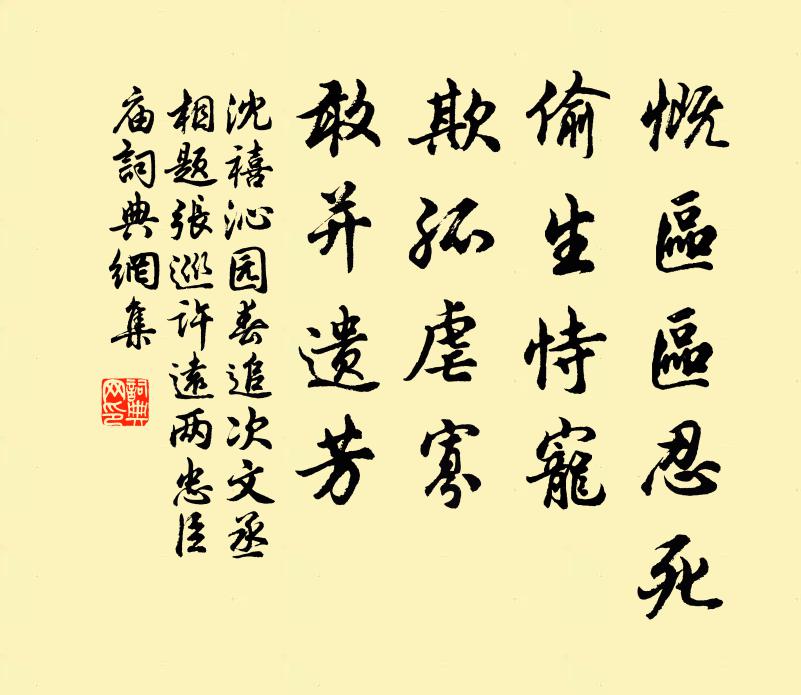 慨區區忍死
偷生恃寵
欺孤虐寡
敢并遗芳
沈禧沁园春追次文丞
相题張巡许遠两忠臣
庙詞典網集
詞典网印